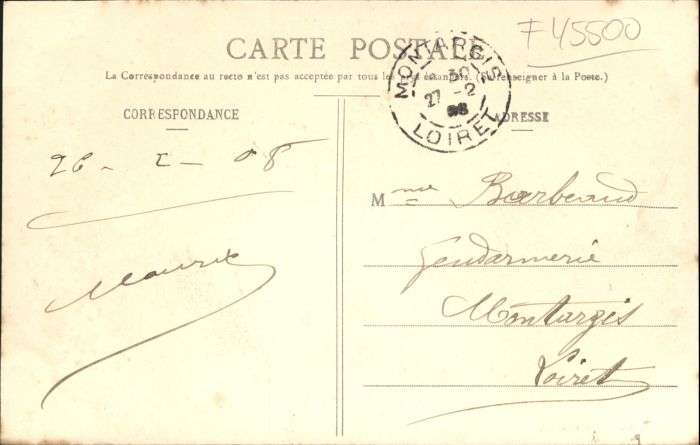 F45500
CARTE POSTALE
La Correspondance au recto n'est pas acceptée par tous les pays étrangers. (Se renseigner à la Poste.)
MONTARGIS
27 -2
LOIRET
CORRESPONDANCE
ADRESSE
26 - 2 - 08
Mme Barbeaud
Gendarmerie
Montargis
Loiret